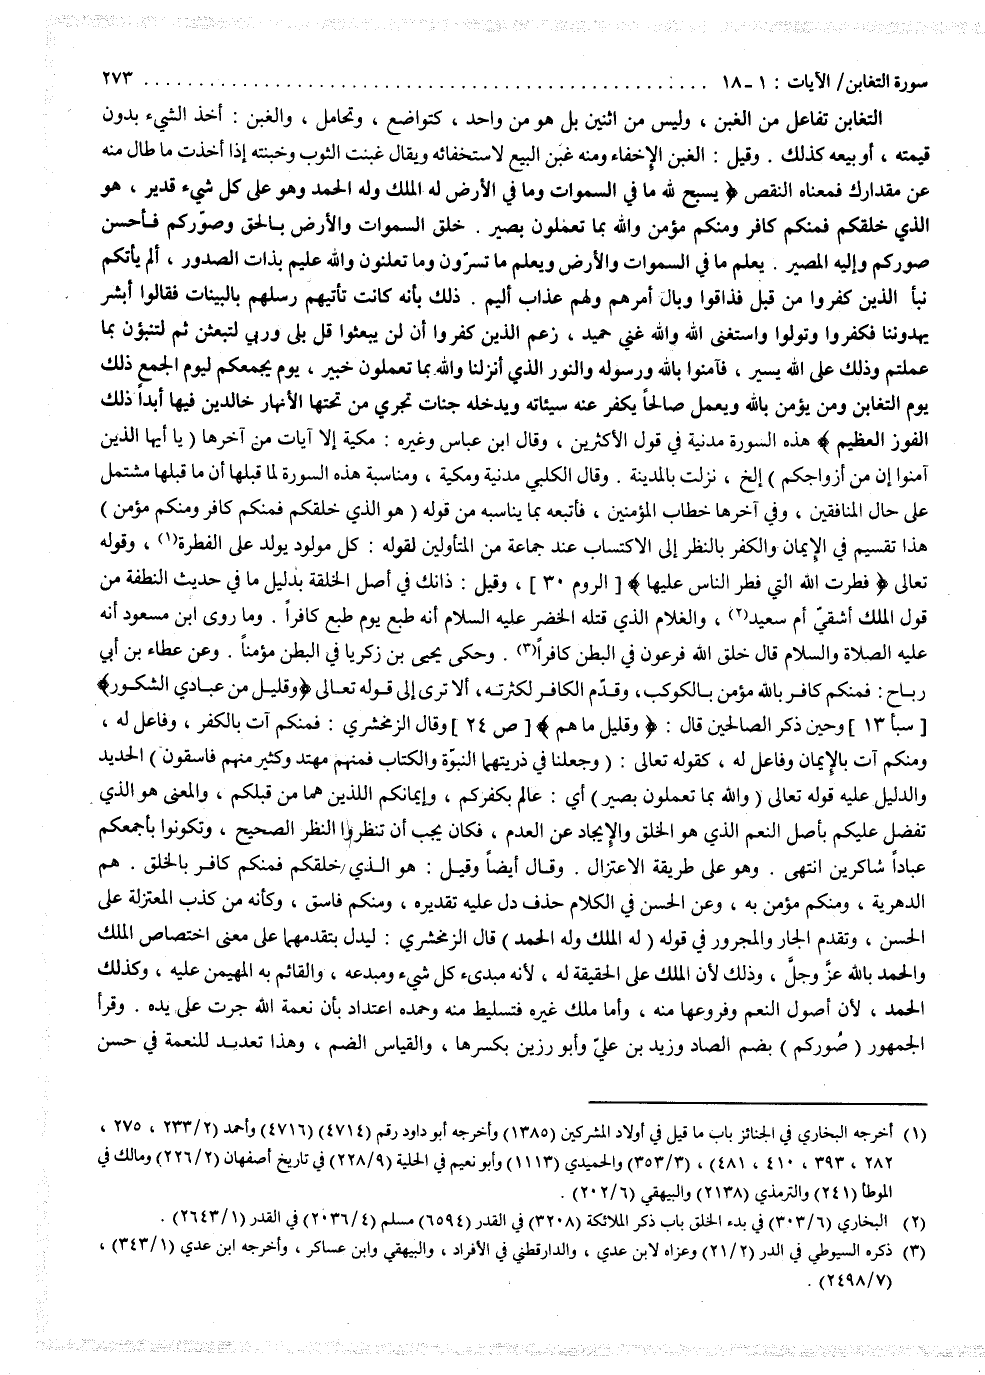 سورة التغابن/ الآيات : ١ ـ ١٨ . . . . . . . . . . . . . . . . . . . . . . . . . . . . . . . . . . . . . . . . . . . . ٢٧٣
التغابن تفاعل من الغبن ، وليس من اثنين بل هو من واحد ، كتواضع ، وتحامل ، والغبن : أخذ الشيء بدون
قيمته ، أو بيعه كذلك . وقيل : الغبن الإخفاء ومنه غبن البيع لاستخفائه ويقال غبنت الثوب وخبنته إذا أخذت ما طال منه
عن مقدارك فمعناه النقص ﴿ يسبح لله ما في السموات وما في الأرض له الملك وله الحمد وهو على كل شيء قدير ، هو
الذي خلقكم فمنكم كافر ومنكم مؤمن والله بما تعملون بصير . خلق السموات والأرض بالحق وصوّركم فأحسن
صوركم وإليه المصير . يعلم ما في السموات والأرض ويعلم ما تسرّون وما تعلنون والله عليم بذات الصدور ، ألم يأتكم
نبأ الذين كفروا من قبل فذاقوا وبال أمرهم ولهم عذاب أليم . ذلك بأنه كانت تأتيهم رسلهم بالبينات فقالوا أبشر
يهدوننا فكفروا وتولوا واستغنى الله والله غني حميد ، زعم الذين كفروا أن لن يبعثوا قل بلى وربي لتبعثن ثم لتنبؤن بما
عملتم وذلك على الله يسير ، فآمنوا بالله ورسوله والنور الذي أنزلنا والله بما تعملون خبير ، يوم يجمعكم ليوم الجمع ذلك
يوم التغابن ومن يؤمن بالله ويعمل صالحاً يكفر عنه سيئاته ويدخله جنات تجري من تحتها الأنهار خالدين فيها أبداً ذلك
الفوز العظيم ﴾ هذه السورة مدنية في قول الأكثرين ، وقال ابن عباس وغيره : مكية إلا آيات من آخرها ( يا أيها الذين
آمنوا إن من أزواجكم ) إلخ ، نزلت بالمدينة . وقال الكلبي مدنية ومكية ، ومناسبة هذه السورة لما قبلها أن ما قبلها مشتمل
على حال المنافقين ، وفي آخرها خطاب المؤمنين ، فأتبعه بما يناسبه من قوله ( هو الذي خلقكم فمنكم كافر ومنكم مؤمن )
هذا تقسيم في الإيمان والكفر بالنظر إلى الاكتساب عند جماعة من المتأولين لقوله : كل مولود يولد على الفطرة(١) ، وقوله
تعالى ﴿ فطرت الله التي فطر الناس عليها ﴾ [ الروم ٣٠ ] ، وقيل : ذانك في أصل الخلقة بدليل ما في حديث النطفة من
قول الملك أشقيّ أم سعيد(٢) ، والغلام الذي قتله الخضر عليه السلام أنه طبع يوم طبع كافراً . وما روى ابن مسعود أنه
عليه الصلاة والسلام قال خلق الله فرعون في البطن كافراً(٣) . وحكى يحيى بن زكريا في البطن مؤمناً . وعن عطاء بن أبي
رباح : فمنكم كافر بالله مؤمن بالكوكب، وقدّم الكافر لكثرته، ألا ترى إلى قوله تعالى ﴿وقليل من عبادي الشكور﴾
[ سبأ ١٣ ] وحين ذكر الصالحين قال : ﴿ وقليل ما هم ﴾ [ ص ٢٤ ] وقال الزمخشري : فمنكم آت بالكفر ، وفاعل له ،
ومنكم آت بالإيمان وفاعل له ، كقوله تعالى : ( وجعلنا في ذريتهما النبوّة والكتاب فمنهم مهتد وكثير منهم فاسقون ) الحديد
والدليل عليه قوله تعالى ( والله بما تعملون بصير ) أي : عالم بكفركم ، وإيمانكم اللذين هما من قبلكم ، والمعنى هو الذي
تفضل عليكم بأصل النعم الذي هو الخلق والإيجاد عن العدم ، فكان يجب أن تنظروا النظر الصحيح ، وتكونوا بأجمعكم
عباداً شاكرين انتهى . وهو على طريقة الاعتزال . وقال أيضاً وقيل : هو الذي خلقكم فمنكم كافر بالخلق . هم
الدهرية ، ومنكم مؤمن به ، وعن الحسن في الكلام حذف دل عليه تقديره ، ومنكم فاسق ، وكأنه من كذب المعتزلة على
الحسن ، وتقدم الجار والمجرور في قوله ( له الملك وله الحمد ) قال الزمخشري : ليدل بتقدمهما على معنى اختصاص الملك
والحمد بالله عزَّ وجلَّ ، وذلك لأن الملك على الحقيقة له ، لأنه مبدىء كل شيء ومبدعه ، والقائم به المهيمن عليه ، وكذلك
الحمد ، لأن أصول النعم وفروعها منه ، وأما ملك غيره فتسليط منه وحمده اعتداد بأن نعمة الله جرت على يده . وقرأ
الجمهور ( صُوركم ) بضم الصاد وزيد بن عليّ وأبو رزين بكسرها ، والقياس الضم ، وهذا تعديد للنعمة في حسن
(١) أخرجه البخاري في الجنائز باب ما قيل في أولاد المشركين (١٣٨٥) وأخرجه أبو داود رقم (٤٧١٤) (٤٧١٦) وأحمد (٢/ ٢٣٣ ، ٢٧٥ ،
٢٨٢ ، ٣٩٣ ، ٤١٠ ، ٤٨١) ، (٣/ ٣٥٣) والحميدي (١١١٣) وأبو نعيم في الحلية (٩/ ٢٢٨) في تاريخ أصفهان (٢/ ٢٢٦) ومالك في
الموطأ (٢٤١) والترمذي (٢١٣٨) والبيهقي (٦/ ٢٠٢) .
(٢) البخاري (٦/ ٣٠٣) في بدء الخلق باب ذكر الملائكة (٣٢٠٨) في القدر (٦٥٩٤) مسلم (٤/ ٢٠٣٦) في القدر (١/ ٢٦٤٣) .
(٣) ذكره السيوطي في الدر (٢/ ٢١) وعزاه لابن عدي ، والدارقطني في الأفراد ، والبيهقي وابن عساكر ، وأخرجه ابن عدي (١/ ٣٤٣) ،
(٧/ ٢٤٩٨) .